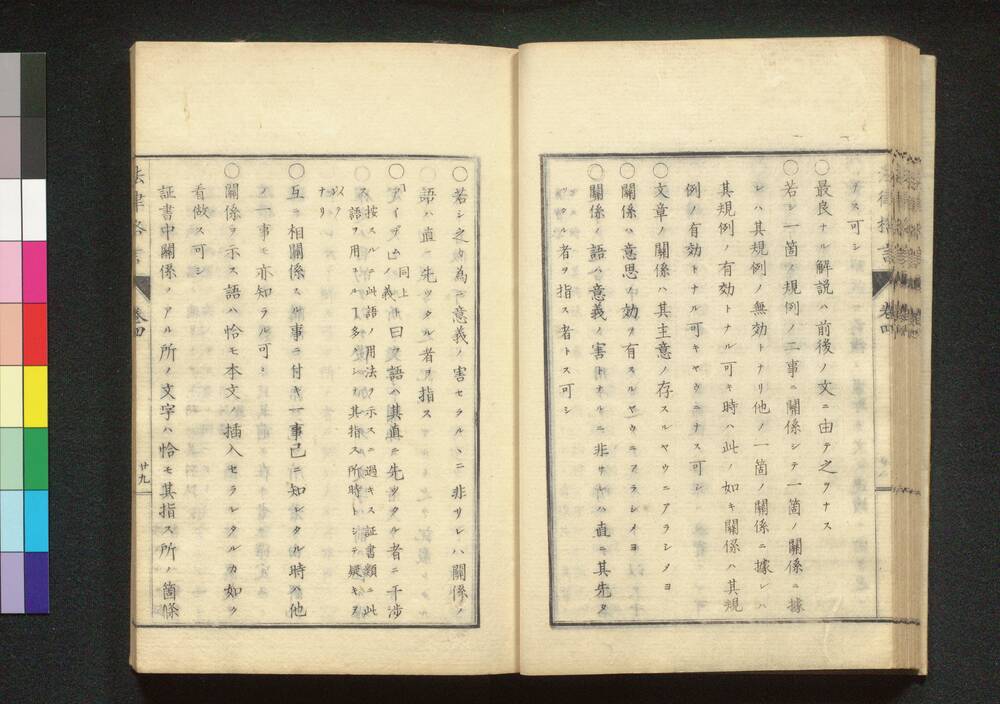 ナス可シ
○最良ナル解説ハ前後ノ文ニ由テ之ヲナス
○若シ一箇ノ規例ノ二事ニ關係シテ一箇ノ關係ニ據
レハ其規例ノ無効トナリ他ノ一箇ノ關係ニ據レハ
其規例ノ有効トナル可キ時ハ此ノ如キ關係ハ其規
例ノ有効トナル可キヤウニナス可シ
○文章ノ關係ハ其主意ノ存スルヤウニアラシメヨ
○關係ハ意思ノ効ヲ有スルヤウニアラシイヨ
○關係ノ語ハ意義ノ害トナルニ非サレハ直ニ其先タ
ツタル者ヲ指ス者トス可シ
○若シ之カ為ニ意義ノ害セラルヽニ非サレハ關係ノ
語ハ直ニ先ツタル者ヲ指ス
○アイデムノ義同上曰ク語ハ其直ニ先ツタル者ニ干渉
ス
按スルニ此語ノ用法ヲ示スニ過キス証書類ニ此
語ヲ用スルヿ多シ其指ス所時トシテ疑キヲ
ナリ
○互ニ相關係スル事ニ付キ一事已ニ知レタル時ハ他
ノ一事モ亦知ラル可シ
○關係ヲ示ス語ハ恰モ本文ノ插入セラレタルカ如ク
看做ス可シ
証書中關係ノアル所ノ文字ハ恰モ其指ス所ノ箇條
法律格言
卷四
廿九